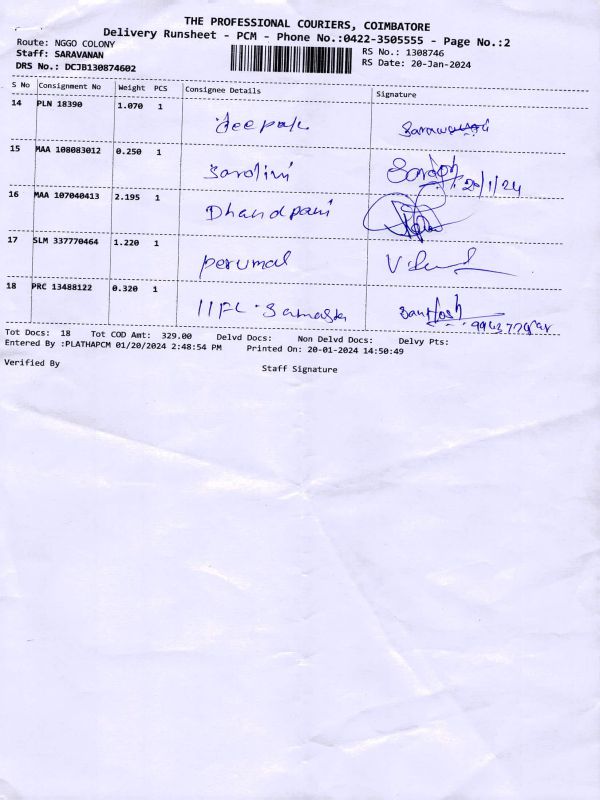 THE PROFESSIONAL COURIERS, COIMBATORE
Delivery Runsheet - PCM - Phone No.:0422-3505555 - Page No.:2
Route: NGGO COLONY
Staff: SARAVANAN
DRS No.: DCJB130874602
RS No.: 1308746
RS Date: 20-Jan-2024
S No Consignment No Weight PCS Consignee Details Signature
14 PLN 18390 1.070 1
deepak
15 MAA 108083012 0.250 1
Sarojini
20/1/24
16 MAA 107040413 2.195 1
Dhandpani
17 SLM 337770464 1.220 1
perumal
18 PRC 13488122 0.320 1
IIFL Samasta Santhosh
Tot Docs: 18 Tot COD Amt: 329.00 Delvd Docs: Non Delvd Docs: Delvy Pts:
Entered By :PLATHAPCM 01/20/2024 2:48:54 PM Printed On: 20-01-2024 14:50:49
Verified By Staff Signature